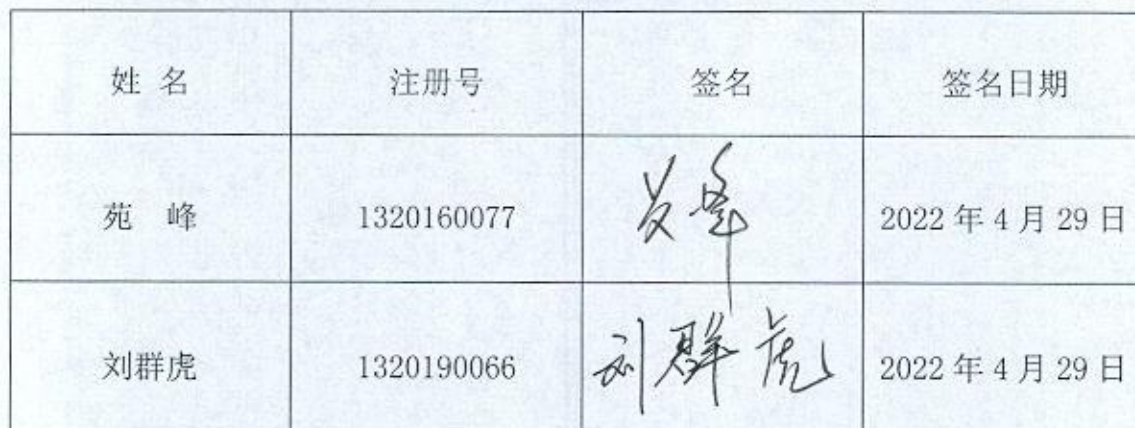 姓 名 注册号 签名 签名日期
苑 峰 1320160077 苑峰 2022 年 4 月 29 日
刘群虎 1320190066 刘群虎 2022 年 4 月 29 日